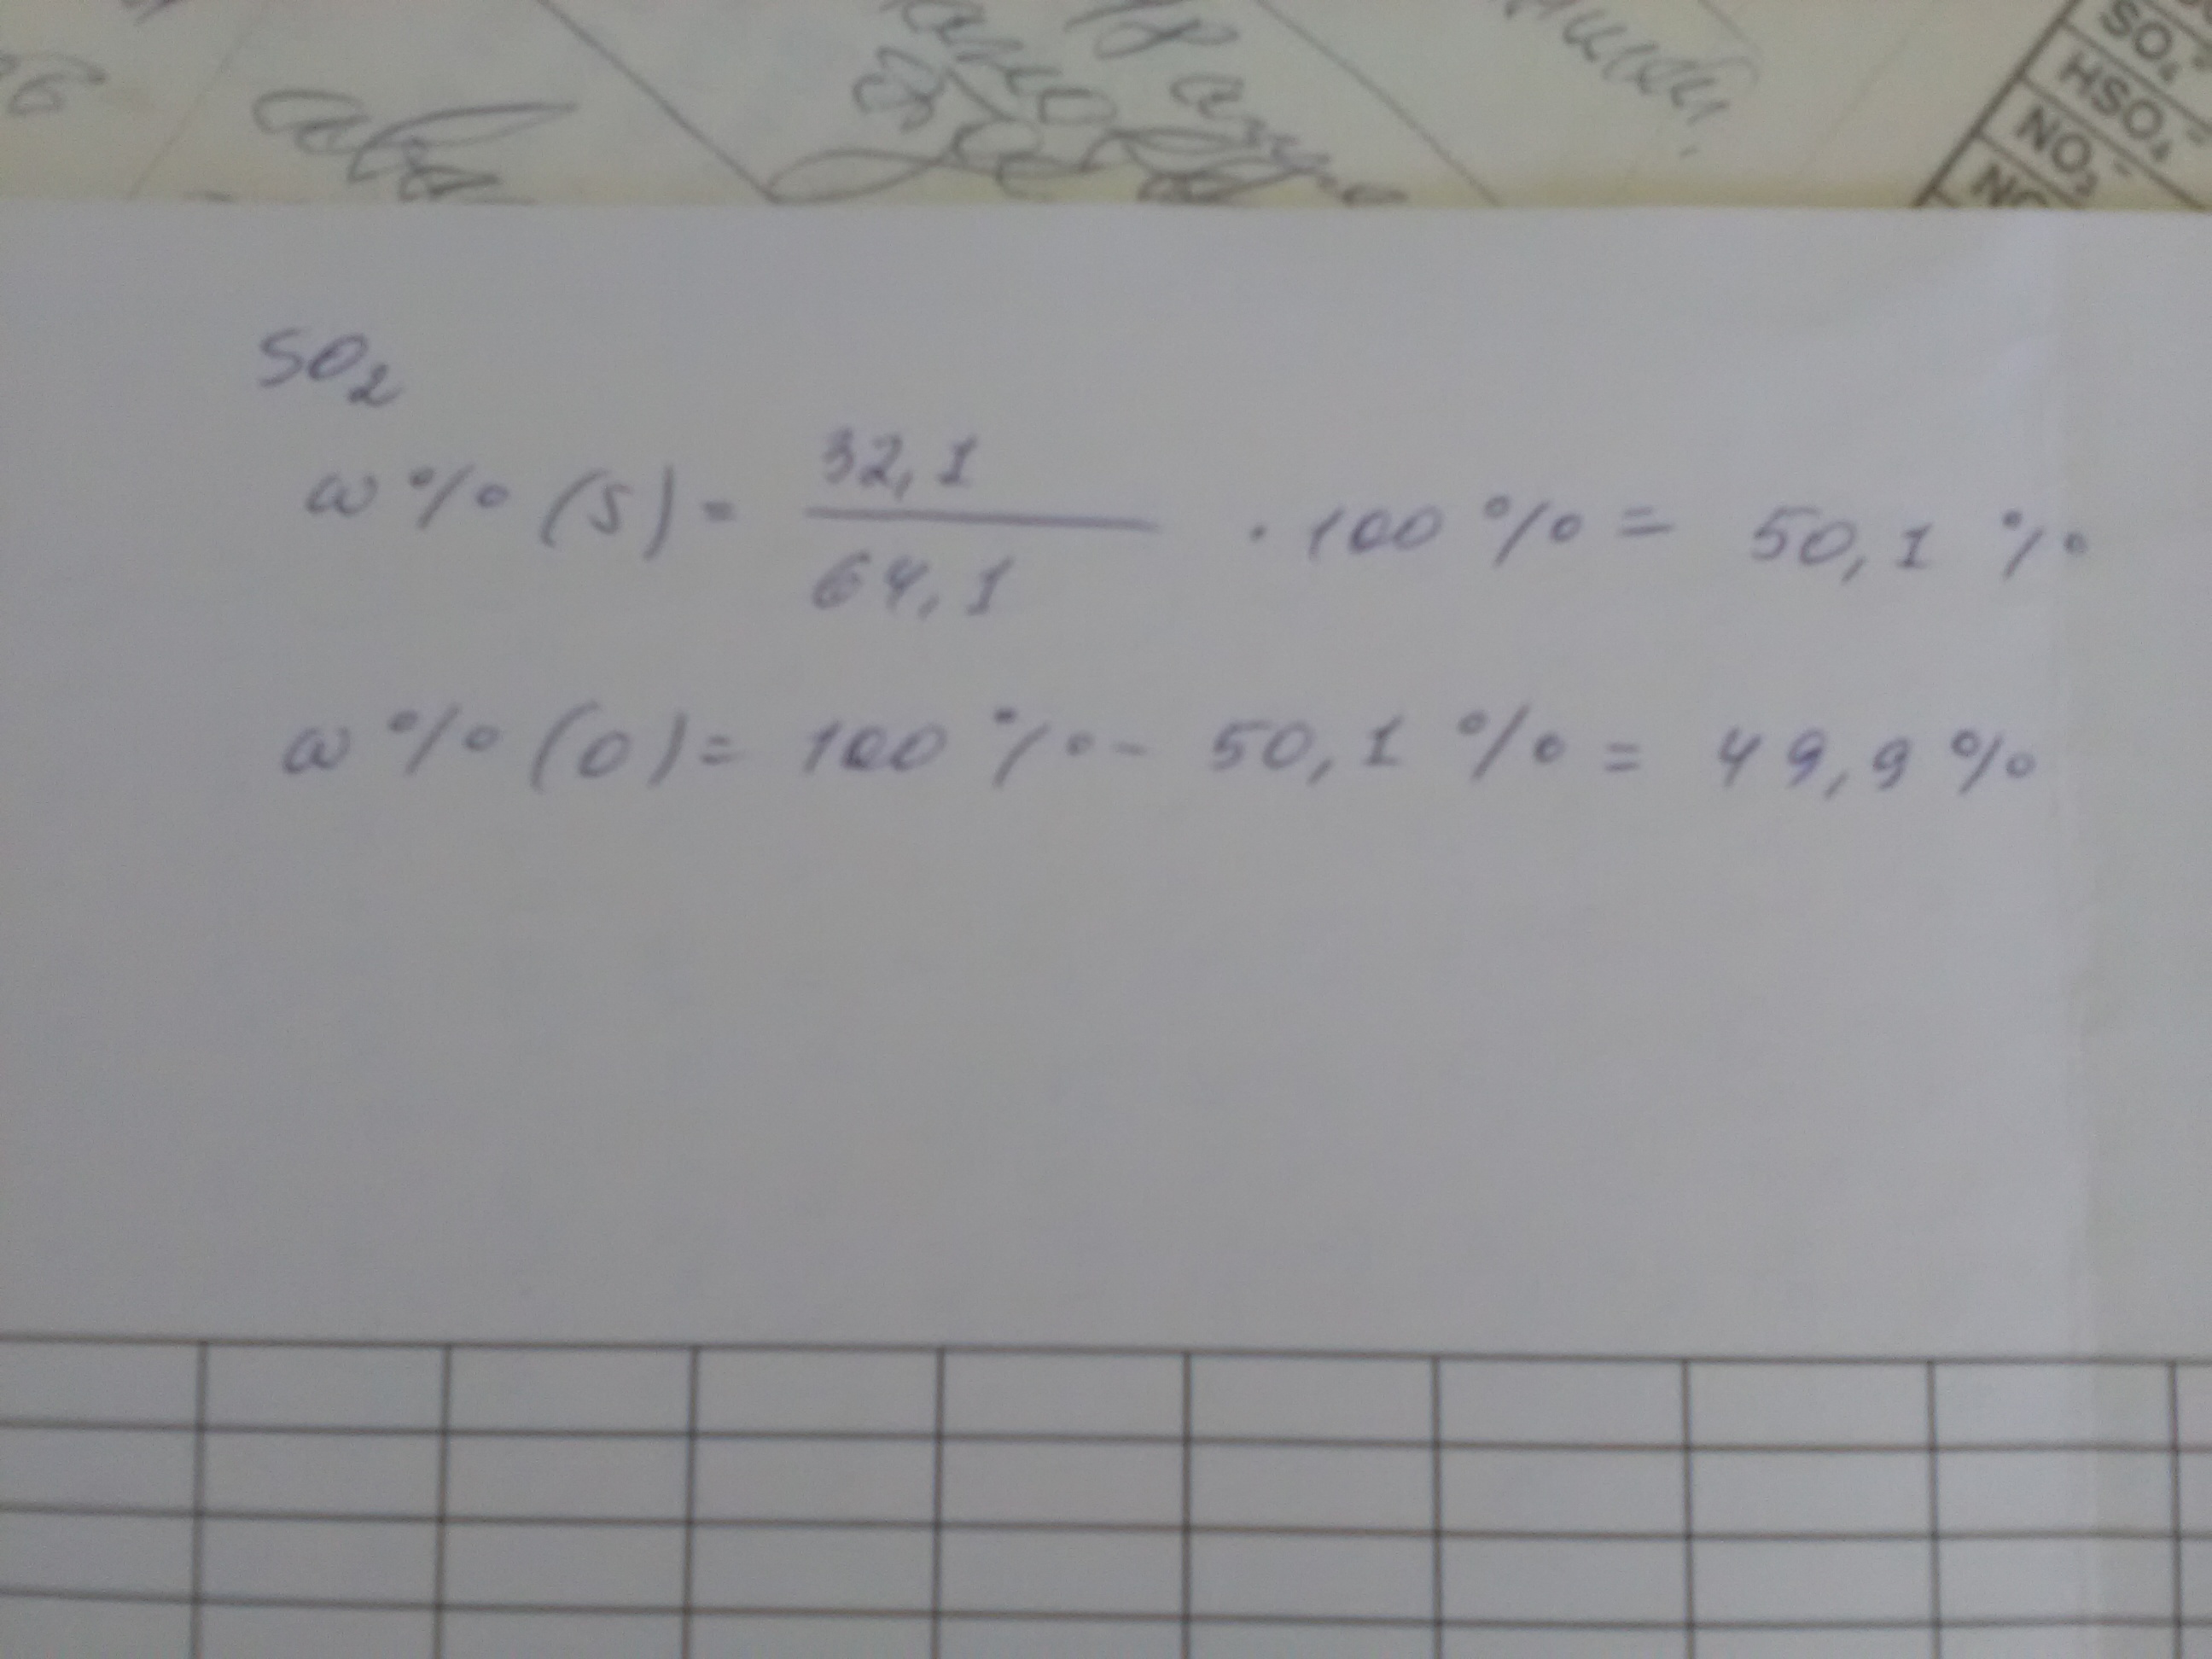 SO₄²⁻
HSO₄⁻
NO₃⁻
SO₂
ω % (S) = 32,1 / 64,1 · 100 % = 50,1 %
ω % (O) = 100 % - 50,1 % = 49,9 %